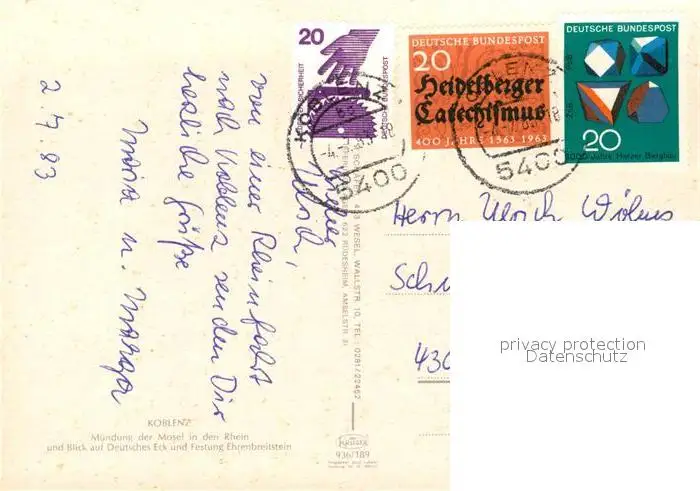 2.7.83
Lieber
Ulrich,
von einer Rheinfahrt
nach Koblenz senden Dir
herzliche Grüße
Maria u.
KOBLENZ
Mündung der Mosel in den Rhein
und Blick auf Deutsches Eck und Festung Ehrenbreitstein
423 WESEL, WALLSTR. 10, TEL. 0281/22462
622 RÜDESHEIM, AMSELSTR. 31
KRÜGER
936/189
20
DEUTSCHE BUNDESPOST
DEUTSCHE BUNDESPOST
20
Heidelberger
Catechismus
400 JAHRE 1563 1963
DEUTSCHE BUNDESPOST
20
1000 Jahre Harzer Bergbau
KOBLENZ
5400
5400
Herrn Ulrich
430
privacy protection
Datenschutz